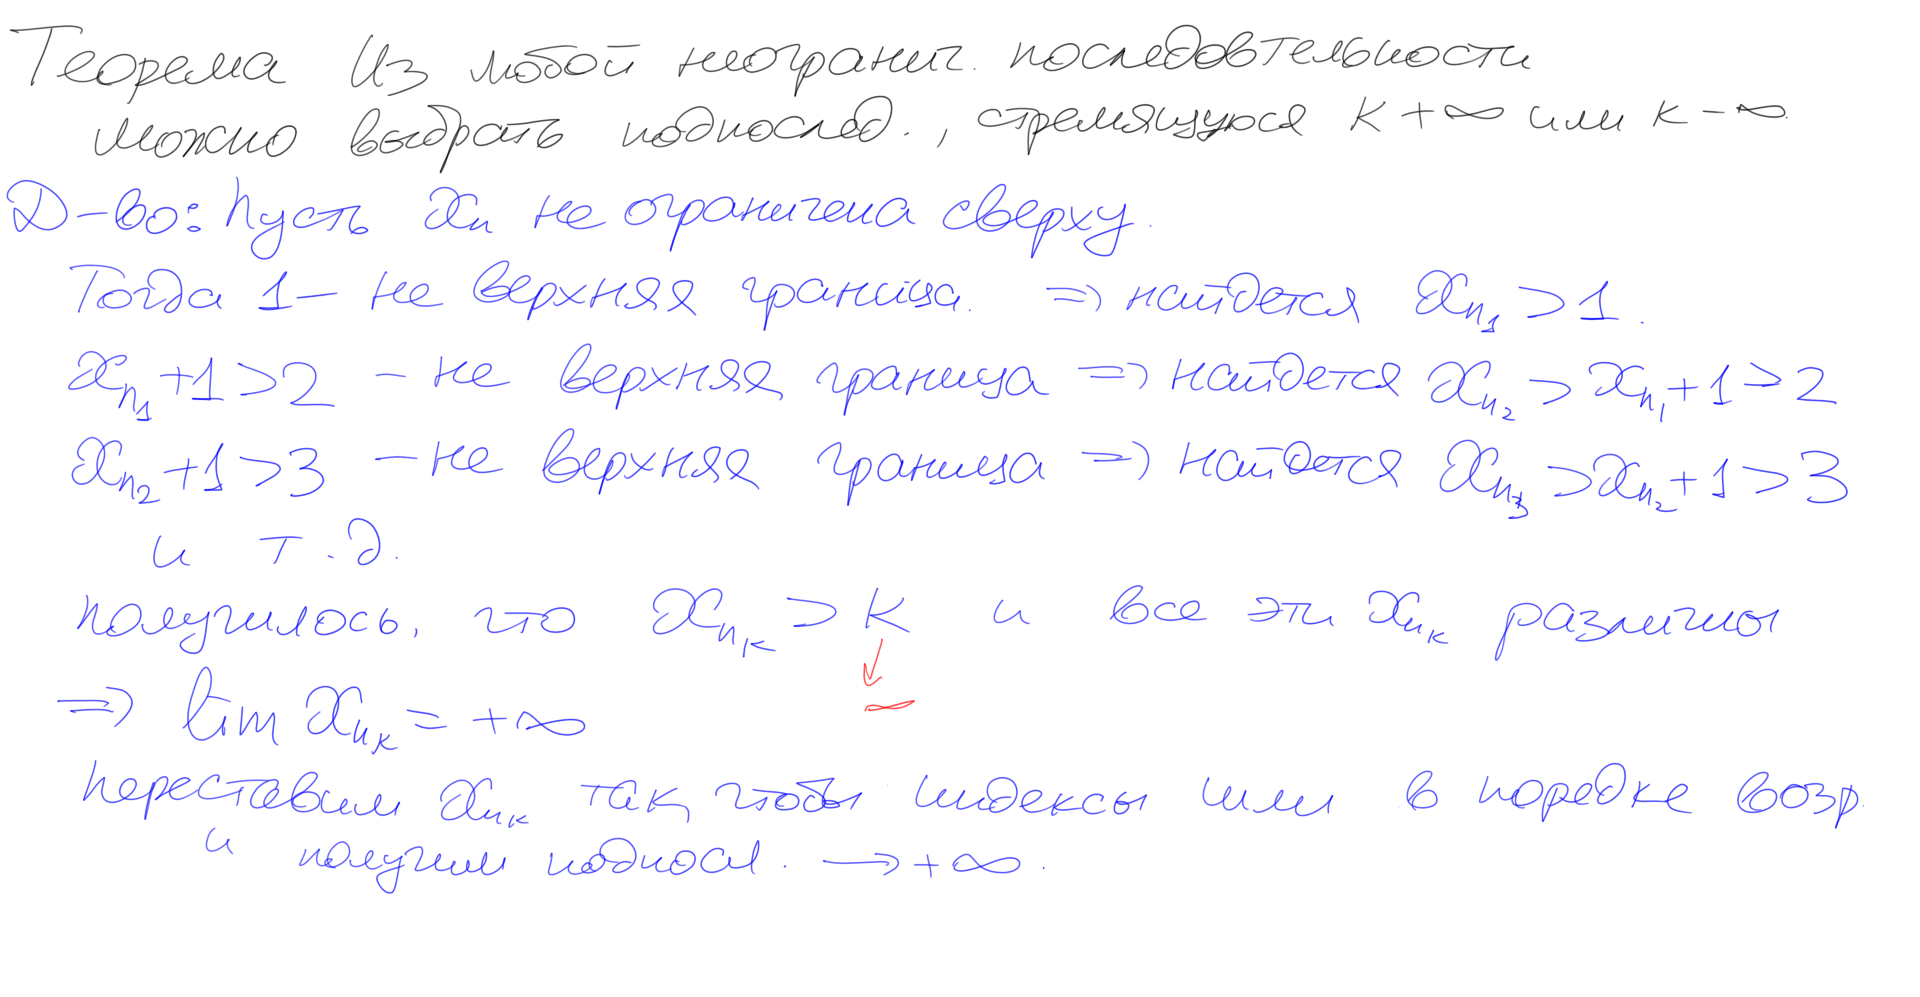 Теорема Из любой неогранич. последовтельности
можно выбрать подпослед., стремящуюся к +∞ или к -∞
Д-во: Пусть xₙ не ограничена сверху.
Тогда 1 – не верхняя граница. => найдется xₙ₁ > 1.
xₙ₁ + 1 > 2 – не верхняя граница => найдется xₙ₂ > xₙ₁ + 1 > 2
xₙ₂ + 1 > 3 – не верхняя граница => найдется xₙ₃ > xₙ₂ + 1 > 3
и т.д.
Получилось, что xₙₖ > k и все эти xₙₖ различны
↓
∞
=> lim xₙₖ = +∞
Переставим xₙₖ так, чтобы индексы шли в порядке возр.
и получим подпосл. → +∞.